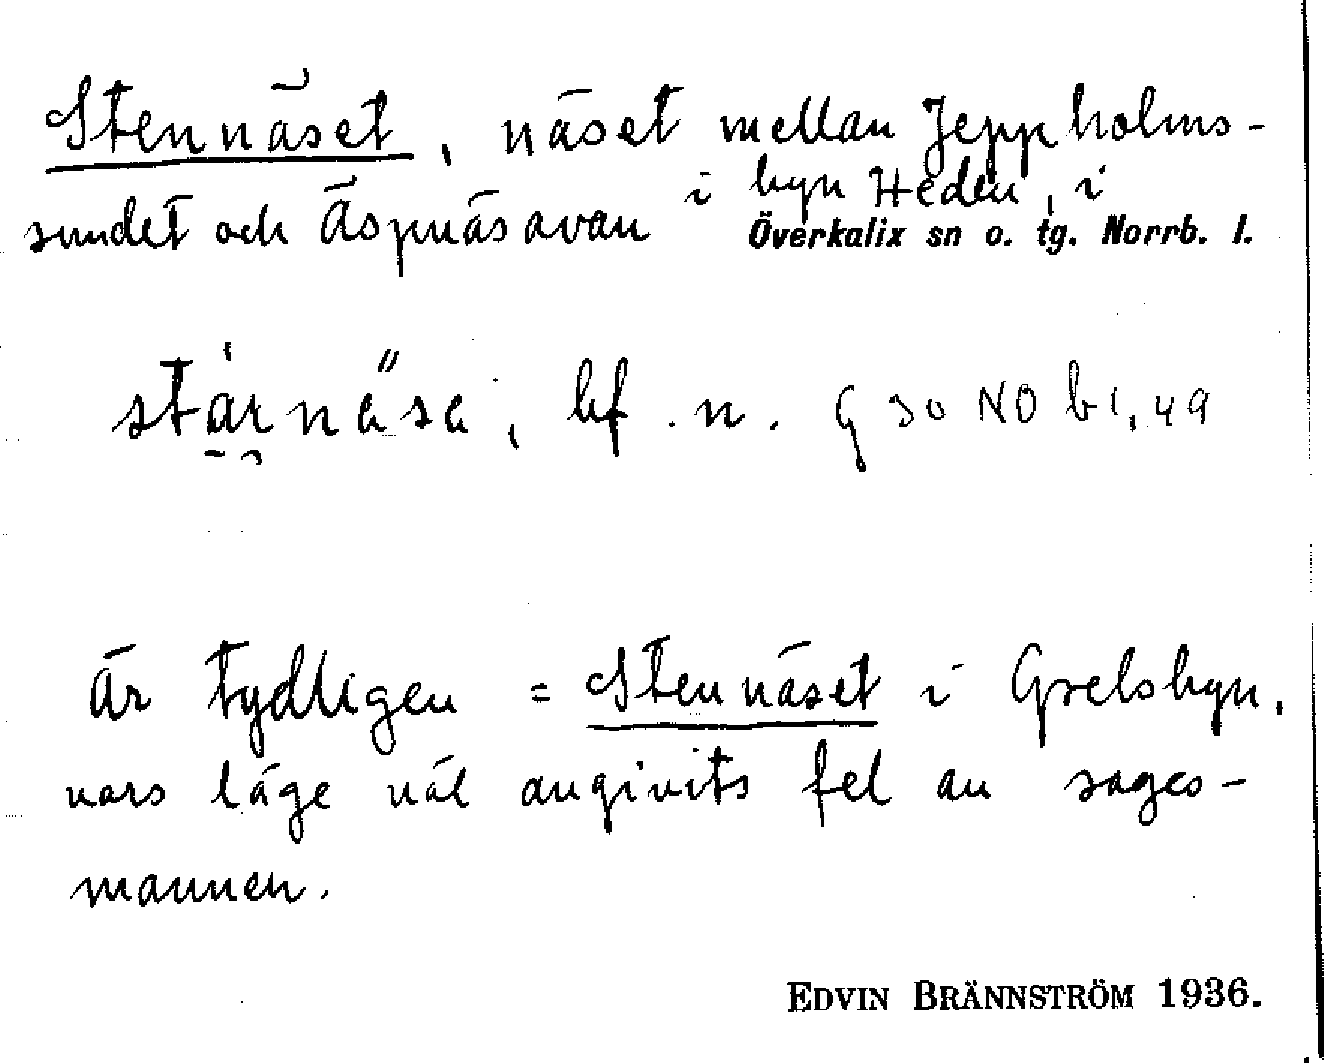 Stennäset, näset mellan Jeppholms-
sundet och Äspnäsavan i byn Heden, i
Överkalix sn o. tg. Norrb. l.
bf. n. 9 30 NO b 1, 49
Är tydligen = Stennäset i Grelsbyn,
vars läge väl angivits fel av sages-
mannen.
EDVIN BRÄNNSTRÖM 1936.